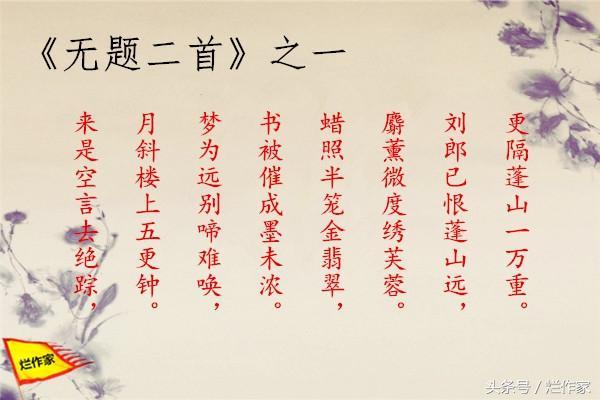 《无题二首》之一
来是空言去绝踪，
月斜楼上五更钟。
梦为远别啼难唤，
书被催成墨未浓。
蜡照半笼金翡翠，
麝薰微度绣芙蓉。
刘郎已恨蓬山远，
更隔蓬山一万重。
烂作家
头条号／烂作家